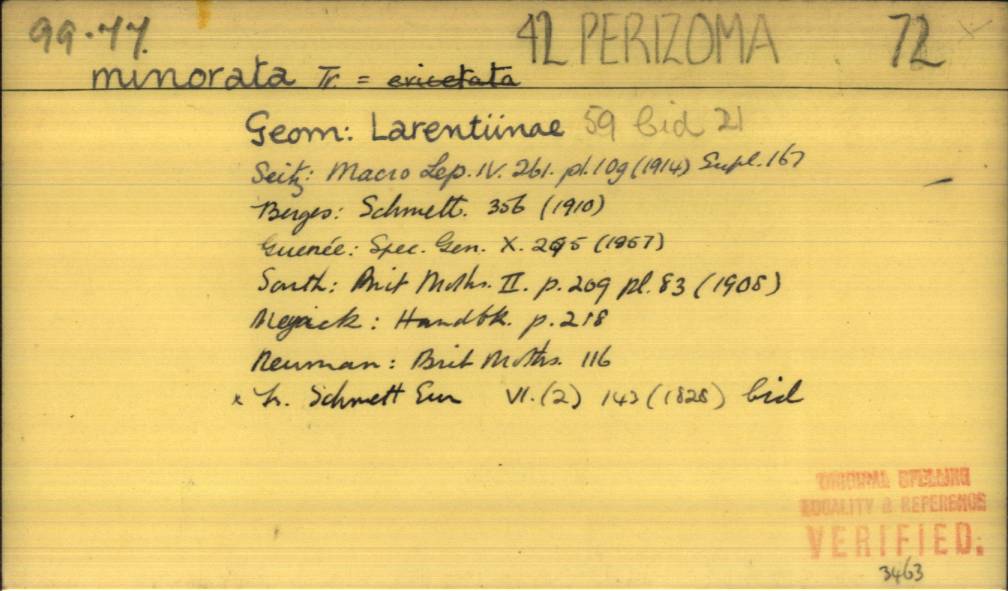 99.77. 42 PERIZOMA 72
minorata Tr. = ericetata
Geom: Larentiinae 59 bid 21
Seitz: Macro Lep. IV. 261. pl. 10g (1914) Supl. 167
Berges: Schmett. 356 (1910)
Guenée: Spec. Gen. X. 295 (1957)
South: Brit Moths. II. p. 209 pl. 83 (1908)
Meyrick: Handbk. p. 218
Newman: Brit Moths. 116
x Tr. Schmett Eur VI. (2) 143 (1828) bid
ORIGINAL SPELLING
LOCALITY & REFERENCE
VERIFIED.
3463